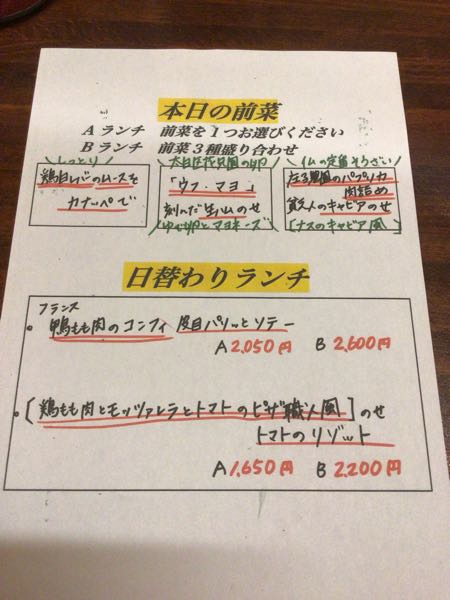 本日の前菜
Aランチ 前菜を1つお選びください
Bランチ 前菜3種盛り合わせ
しっとり
鶏白レバーのムースを
カナッペで
「ウフ・マヨ」
刻んだ生ハムのせ
ゆで卵とマヨネーズ
仏の定番そうざい
パプリカ
肉詰め
貧乏人のキャビアのせ
[ナスのキャビア風]
日替わりランチ
フランス
・鴨もも肉のコンフィ 皮目パリッとソテー
A 2,050円 B 2,600円
・[鶏もも肉とモッツァレラとトマトのピザ職人風]のせ
トマトのリゾット
A 1,650円 B 2,200円